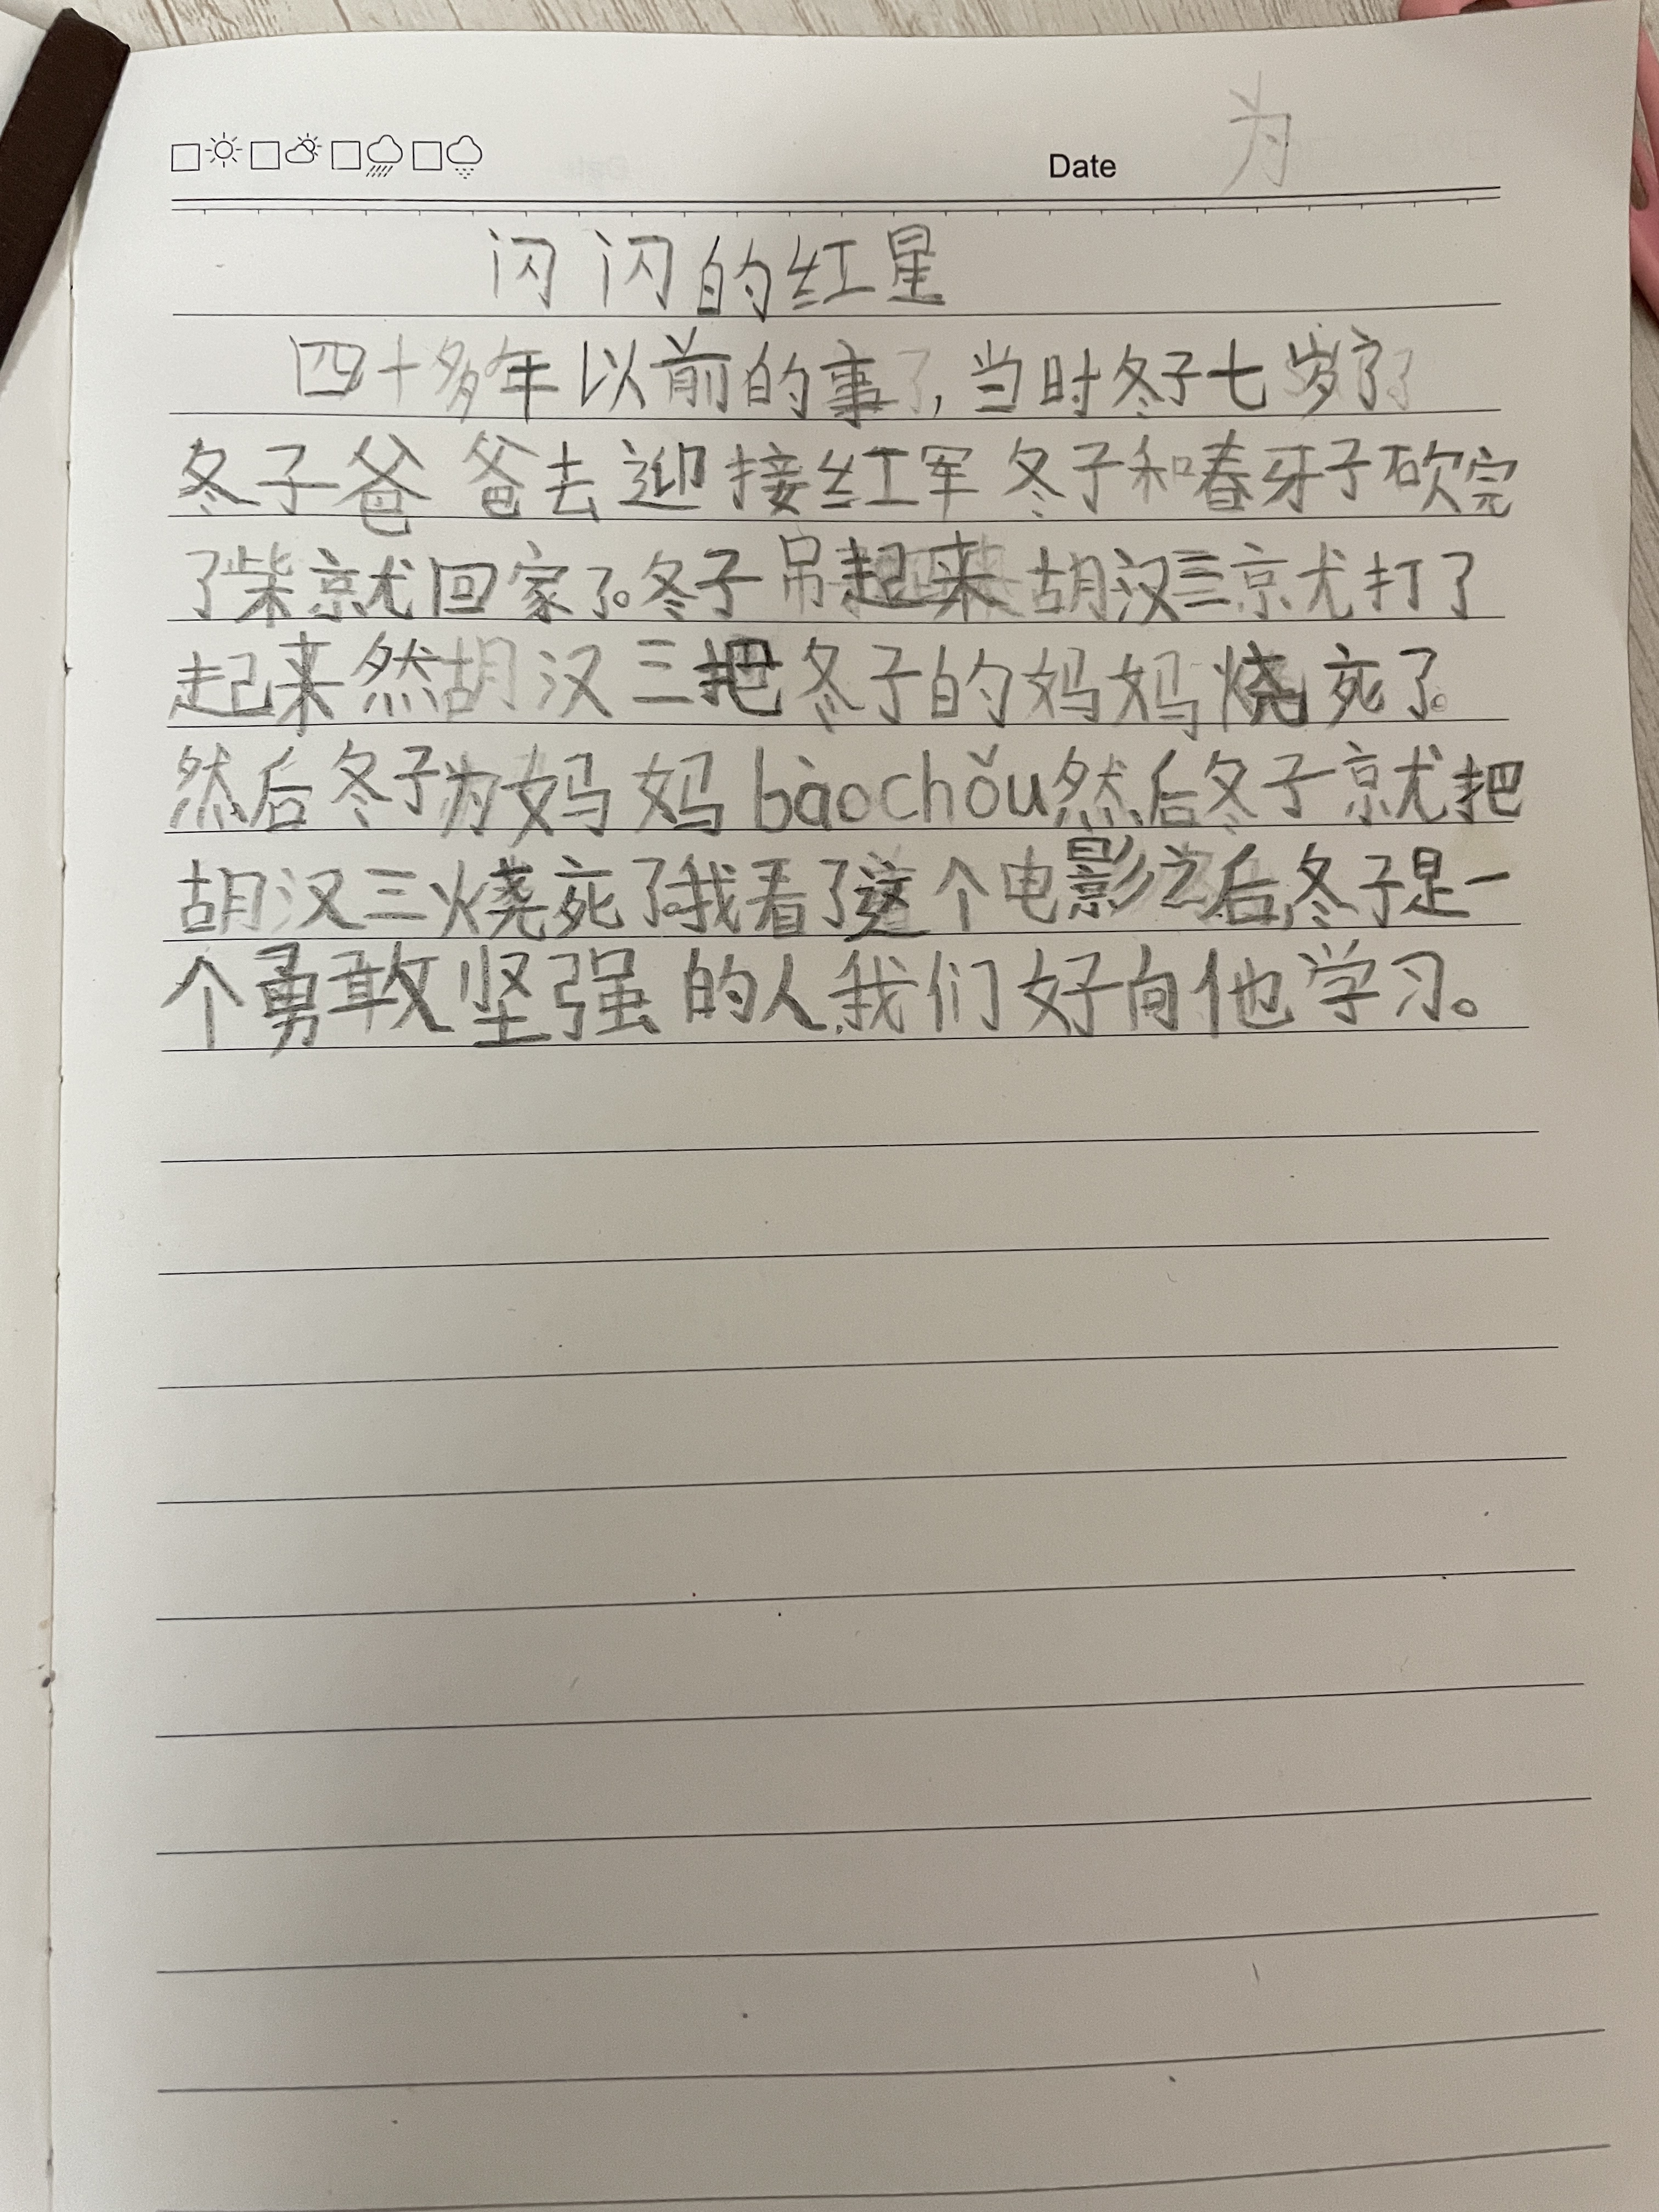 Date 为
闪闪的红星
四十多年以前的事了,当时冬子七岁了
冬子爸爸去迎接红军冬子和春牙子砍完
了柴就回家了。冬子吊起来胡汉三就打了
起来然胡汉三把冬子的妈妈烧死了。
然后冬子为妈妈bàochǒu然后冬子就把
胡汉三烧死了我看了这个电影之后,冬子是一
个勇敢坚强的人.我们好向他学习。